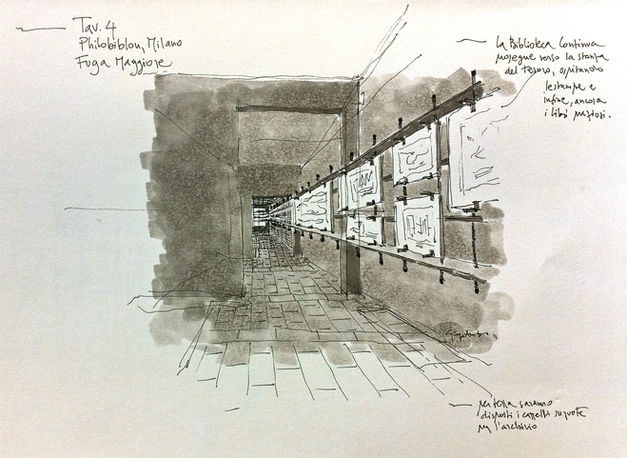 Tav. 4
Philobiblon, Milano
Fuga Maggiore
La Biblioteca Continua
prosegue verso la stanza
del Tesoro, ospitando
le stampe e
infine, ancora
i libri preziosi.
per terra saranno
disposti i cassetti su ruote
per l'archivio